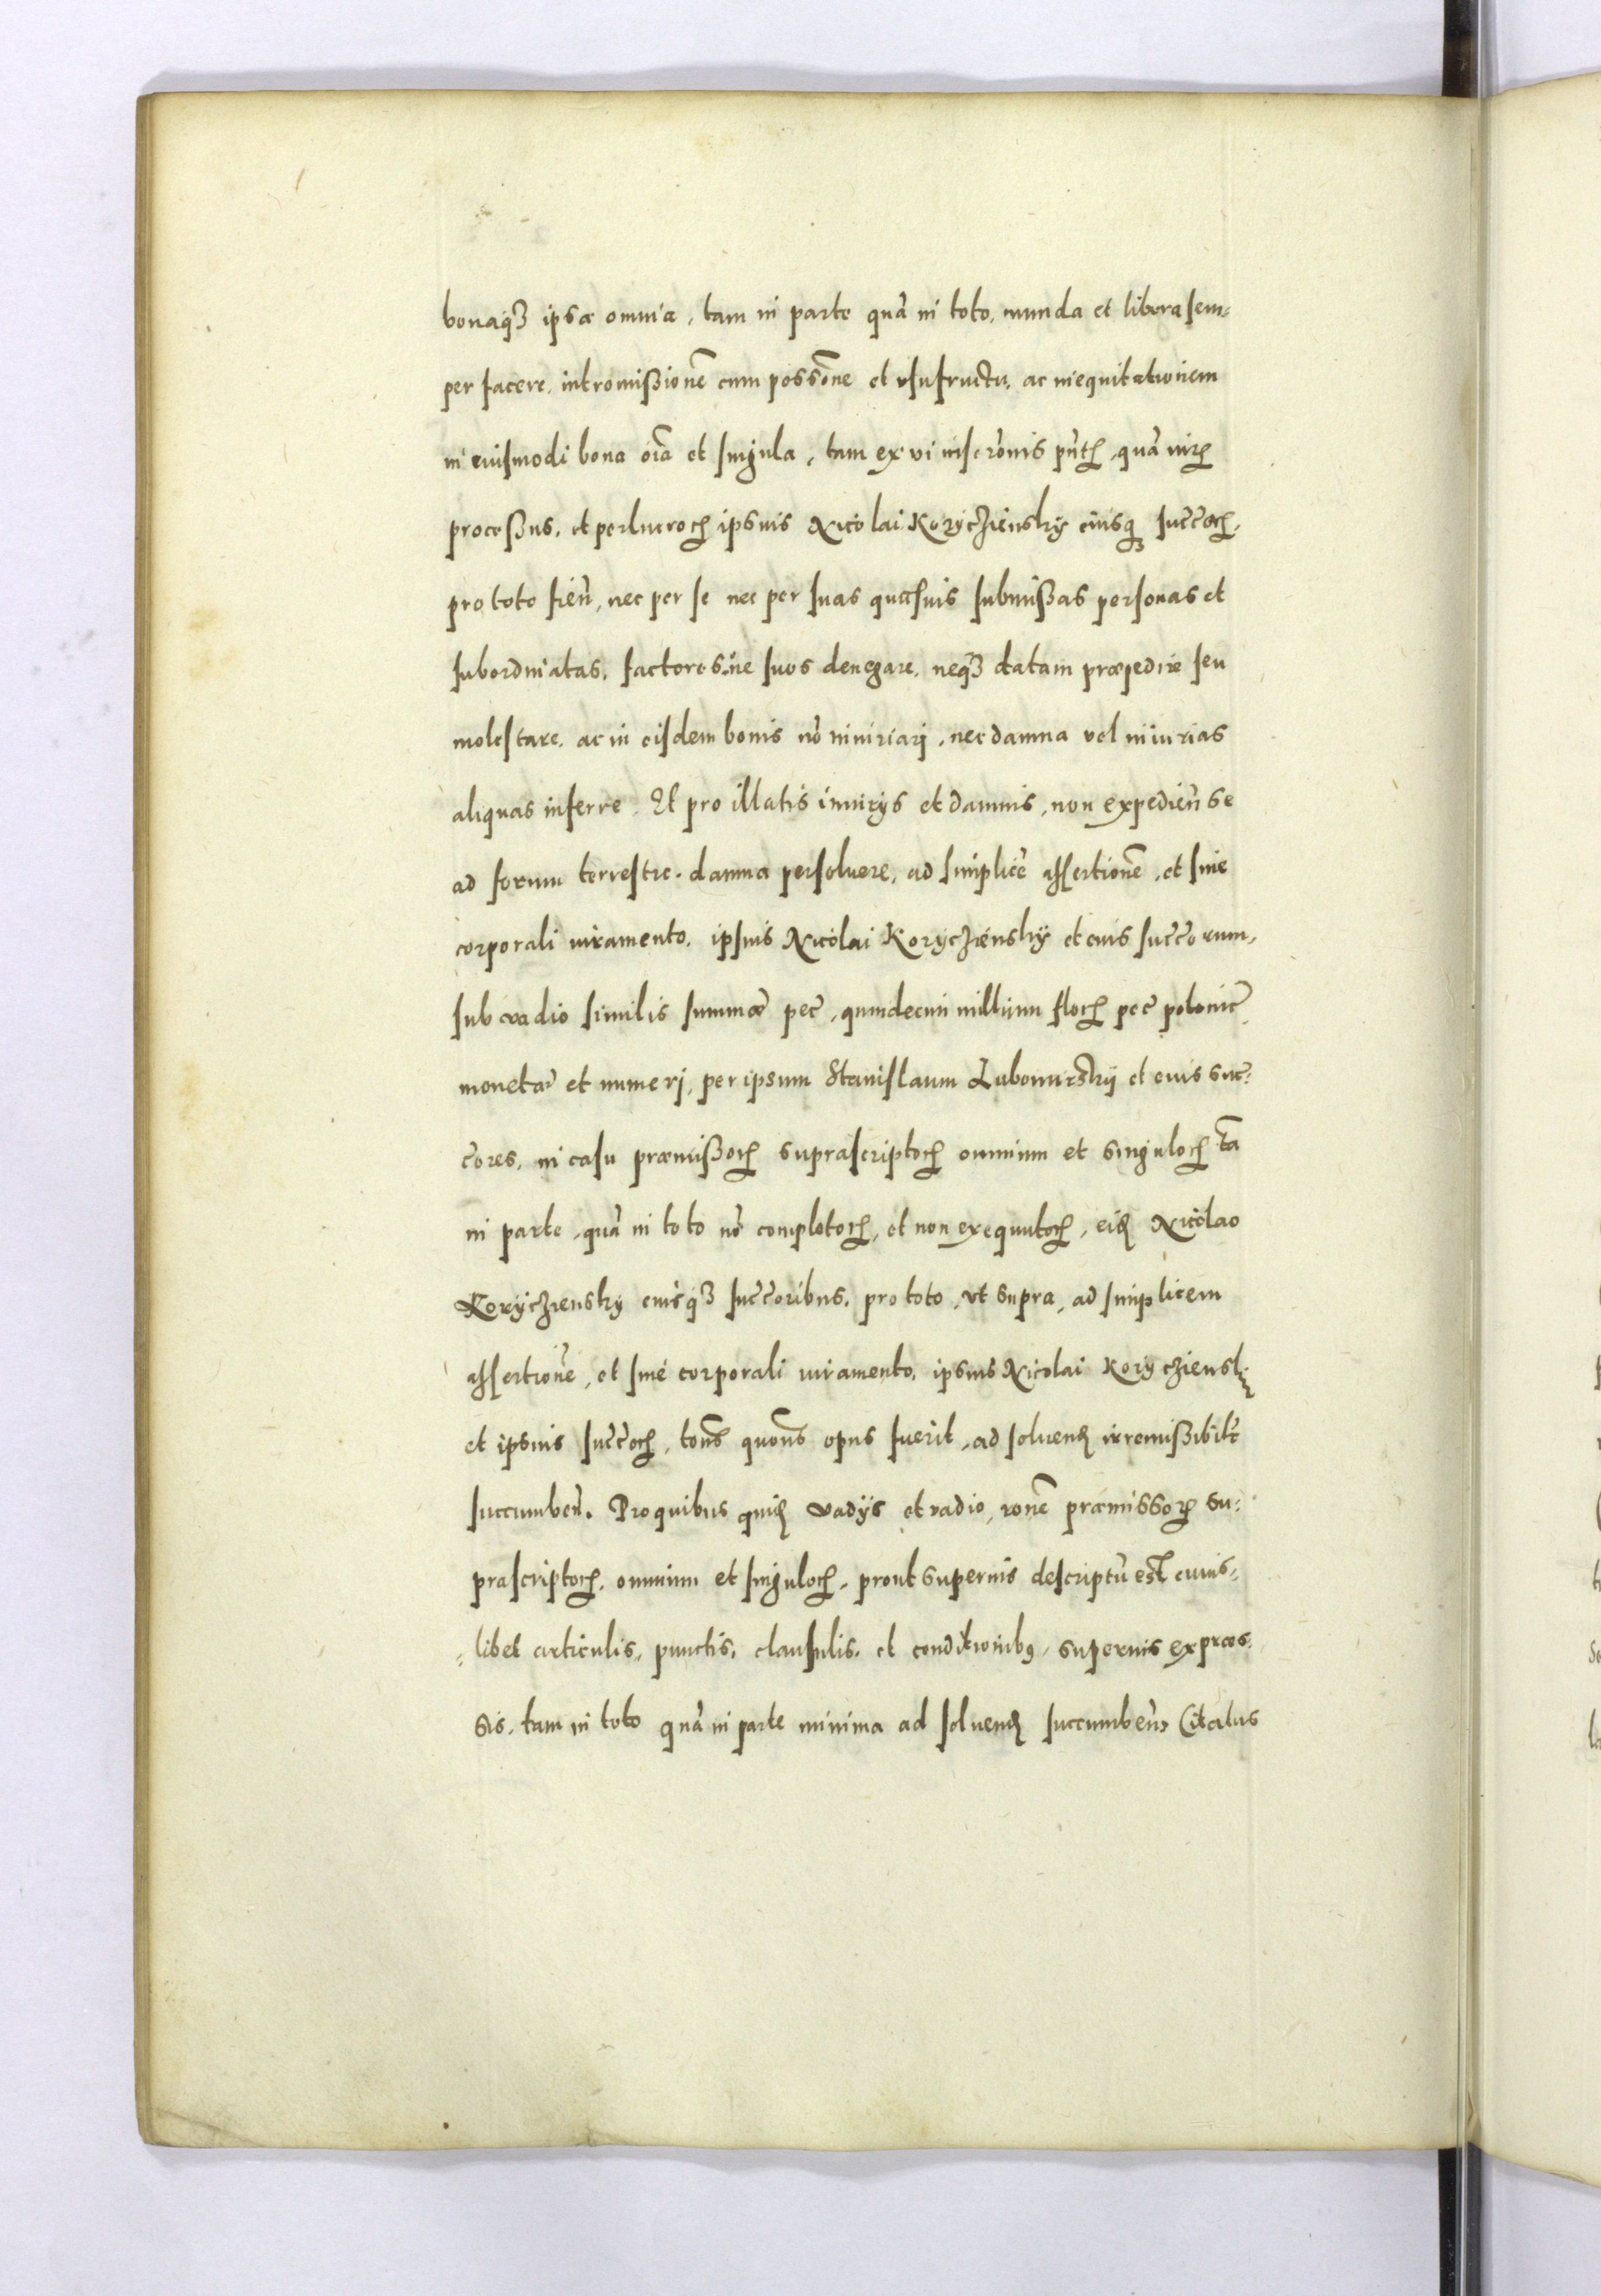 bonaq́ꝫ ipsa omnia, tam in parte quã in toto, munda et libera sem=
per facere, intromißionẽ cum possõne et vsufructu, ac inequitationem
in eiusmodi bona oĩa et singula, tam ex vi inscrõnis pñtꝝ, quã iurꝝ
processus, et perlucroꝝ ipsius Nicolai Korycziensky eiusqꝫ succꝝ,
pro toto fień, nec per se nec per suas quasuis submißas personas et
subordinatas, factoresúe suos denegare, neq́ꝫ datam præpedire seu
molestare, ac in eisdem bonis nõ iniuriarj, nec damna vel iniurias
aliquas inferre. Et pro illatis iniurijs et damnis, non expedień se
ad forum terrestre, damna persoluere, ad simplicẽ assertionẽ, et sine
corporali iuramento, ipsius Nicolai Korycziensky et eius succorum,
sub vadio similis summæ pec̃, quindecim millium floꝝ pec̃ polonic̃
monetæ et numerj, per ipsum Stanislaum Lubomirskij et eius suc=
c̃ores, in casu præmißoꝝ suprascriptoꝝ omnium et singuloꝝ tã
in parte, quã in toto nõ completoꝝ, et non exequutoꝝ, eiꝰ Nicolao
Korycziensky eiusq́ꝫ succ̃oribus, pro toto, vt supra, ad simplicem
assertionẽ, et sine corporali iuramento, ipsius Nicolai Korycziensk
et ipsius succ̃oꝝ, tońs quońs opus fuerit, ad soluenꝰ irremißibilr̃
succumbeń. Pro quibus quiꝰ vadijs et vadio, rõne præmissoꝝ su=
prascriptoꝝ, omnium et singuloꝝ, prout superius descriptũ est, cuius=
=libet articulis, punctis, clausulis, et conditionibꝰ, superius expres=
sis, tam in toto quã in parte minima ad soluenꝰ succumbeń, Citatus